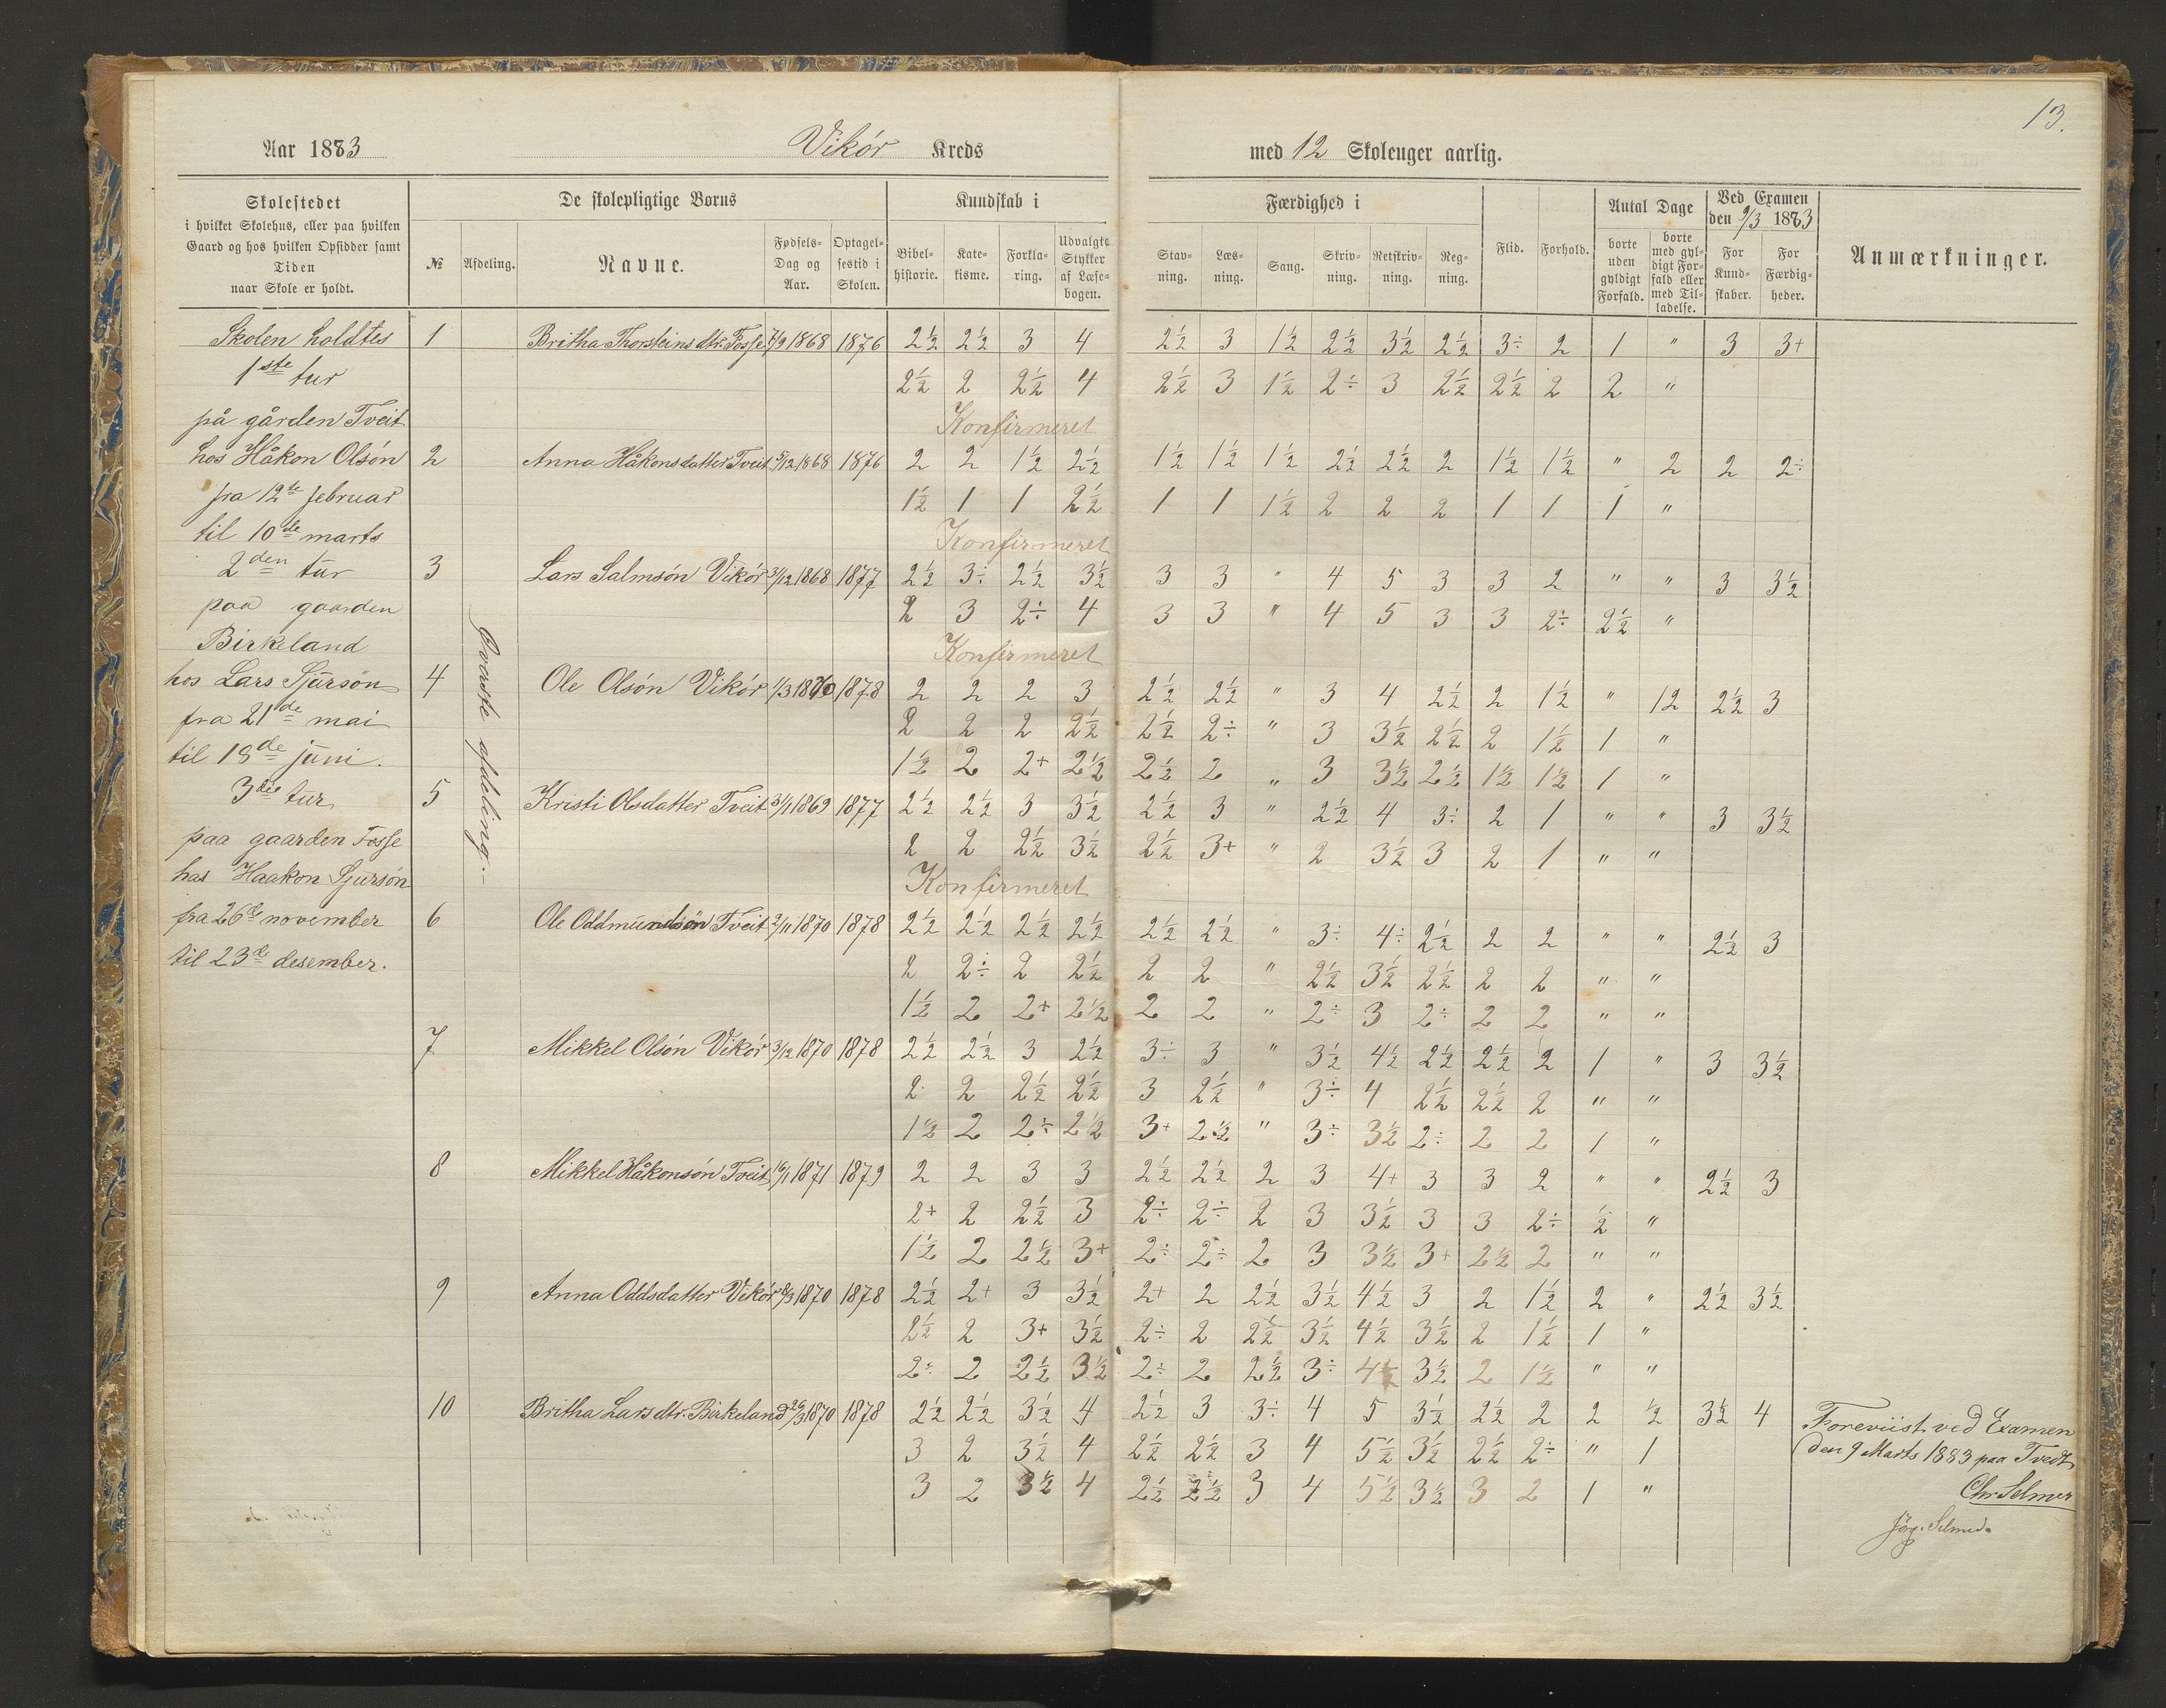 13.
Aar 1883 Vikór Kreds med 12 Skoleuger aarlig.
Skolestedet
i hvilket Skolehus, eller paa hvilken
Gaard og hos hvilken Opsidder samt
Tiden
naar Skole er holdt.
De skolepligtige Børns
№ Afdeling. Navne. Fødsels-Dag og Aar. Optagelsestid i Skolen.
Kundskab i
Bibelhistorie. Katekisme. Forklaring. Udvalgte Stykker af Læsebogen.
Færdighed i
Stavning. Læsning. Sang. Skrivning. Retskrivning. Regning.
Flid. Forhold.
Antal Dage
borte uden gyldigt Forfald. borte med gyldigt Forfald eller med Tilladelse.
Ved Examen
den 9/3 1883
For Kundskaber. For Færdigheder.
Anmærkninger.
Skolen holdtes
1ste tur
på gården Tveit
hos Håkon Olsón
fra 12te februar
til 10de marts
2den tur
paa gaarden
Birkeland
hos Lars Sjursón
fra 21de mai
til 18de juni.
3die tur
paa gaarden Fosse
hos Haakon Sjursón
fra 26de november
til 23de desember.
Øverste afdeling.
1 Britha Thorsteinsdtr. Fosse 7/9 1868 1876 2½ 2½ 3 4 2½ 3 1½ 2½ 3½ 2½ 3÷ 2 1 " 3 3+
2½ 2 2½ 4 2½ 3 1½ 2÷ 3 2½ 2½ 2 2 "
Konfirmeret
2 Anna Håkonsdatter Tveit 5/12 1868 1876 2 2 1½ 2½ 1½ 1½ 1½ 2½ 2½ 2 1½ 1½ " 2 2 2÷
1½ 1 1 2½ 1 1 1½ 2 2 2 1 1 1 "
Konfirmeret
3 Lars Salmsón Vikór 3/12 1868 1877 2½ 3÷ 2½ 3½ 3 3 " 4 5 3 3 2 " " 3 3½
2 3 2÷ 4 3 3 " 4 5 3 3 2÷ 2½ "
Konfirmeret
4 Ole Olsón Vikór 1/3 1870 1878 2 2 2 3 2½ 2½ " 3 4 2½ 2 1½ " 12 2½ 3
2 2 2 2½ 2½ 2÷ " 3 3½ 2½ 2 1½ 1 "
1½ 2 2+ 2½ 2½ 2 " 3 3½ 2½ 1½ 1½ 1 "
5 Kristi Olsdatter Tveit 31/1 1869 1877 2½ 2½ 3 3½ 2½ 3 " 2½ 4 3÷ 2 1 " " 3 3½
2 2 2½ 3½ 2½ 3+ " 2 3½ 3 2 1 " "
Konfirmeret
6 Ole Oddmundsön Tveit 2/11 1870 1878 2½ 2½ 2½ 2½ 2½ 2½ " 3÷ 4÷ 2½ 2 2 " " 2½ 3
2 2÷ 2 2½ 2 2 " 2½ 3½ 2½ 2 2 " "
1½ 2 2+ 2½ 2 2 " 2÷ 3 2÷ 2 2 " "
7 Mikkel Olsón Vikór 3/12 1870 1878 2½ 2½ 3 2½ 3÷ 3 " 3½ 4½ 2½ 2½ 2 1 " 3 3½
2 2 2½ 2½ 3 2½ " 3÷ 4 2½ 2½ 2 " "
1½ 2 2÷ 2½ 3+ 2½ " 3÷ 3½ 2÷ 2 2 1 "
8 Mikkel Håkonsón Tveit 16/1 1871 1879 2 2 3 3 2½ 2½ 2 3 4+ 3 3 2 " " 2½ 3
2+ 2 2½ 3 2÷ 2÷ 2 3 3½ 3 3 2÷ ½ "
1½ 2 2½ 3+ 2÷ 2÷ 2 3 3½ 3+ 2½ 2 " "
9 Anna Oddsdatter Vikór 8/3 1870 1878 2½ 2+ 3 3½ 2+ 2 2½ 3½ 4½ 3 2 1½ 2 " 2½ 3½
2½ 2 3+ 3½ 2÷ 2 2½ 3½ 4½ 3½ 2 1½ 1 "
2÷ 2 2½ 3½ 2÷ 2 2½ 3÷ 4½ 3½ 2 1½ " "
10 Britha Larsdtr. Birkeland 26/3 1870 1878 2½ 2½ 3½ 4 2½ 3 3÷ 4 5 3½ 2½ 2 2 ½ 3½ 4
3 2 3½ 4 2½ 2½ 3 4 5½ 3½ 2½ 2÷ " 1
3 2 3½ 4 2½ 2½ 3 4 5½ 3½ 3 2 1 "
Foreviist ved Examen
den 9 Marts 1883 paa Tvedt
Chr. Selmer